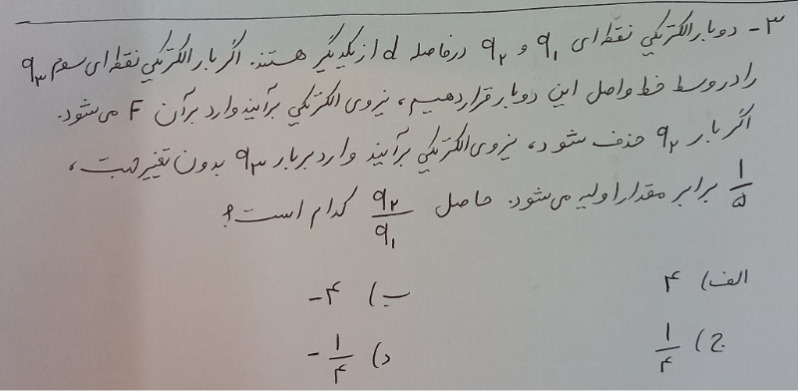 ۳- دو بار الکتریکی نقطه‌ای q₁ و q₂ در فاصله d از یکدیگر هستند. اگر بار الکتریکی نقطه‌ای سوم q₃
را در وسط خط واصل این دو بار قرار دهیم، نیروی الکتریکی برآیند وارد بر آن F می‌شود.
اگر بار q₂ حذف شود، نیروی الکتریکی برآیند وارد بر بار q₃ بدون تغییر جهت،
۱/۵ برابر مقدار اولیه می‌شود. حاصل q₂/q₁ کدام است؟
الف) ۴ ب) -۴
ج) ۱/۴ د) -۱/۴